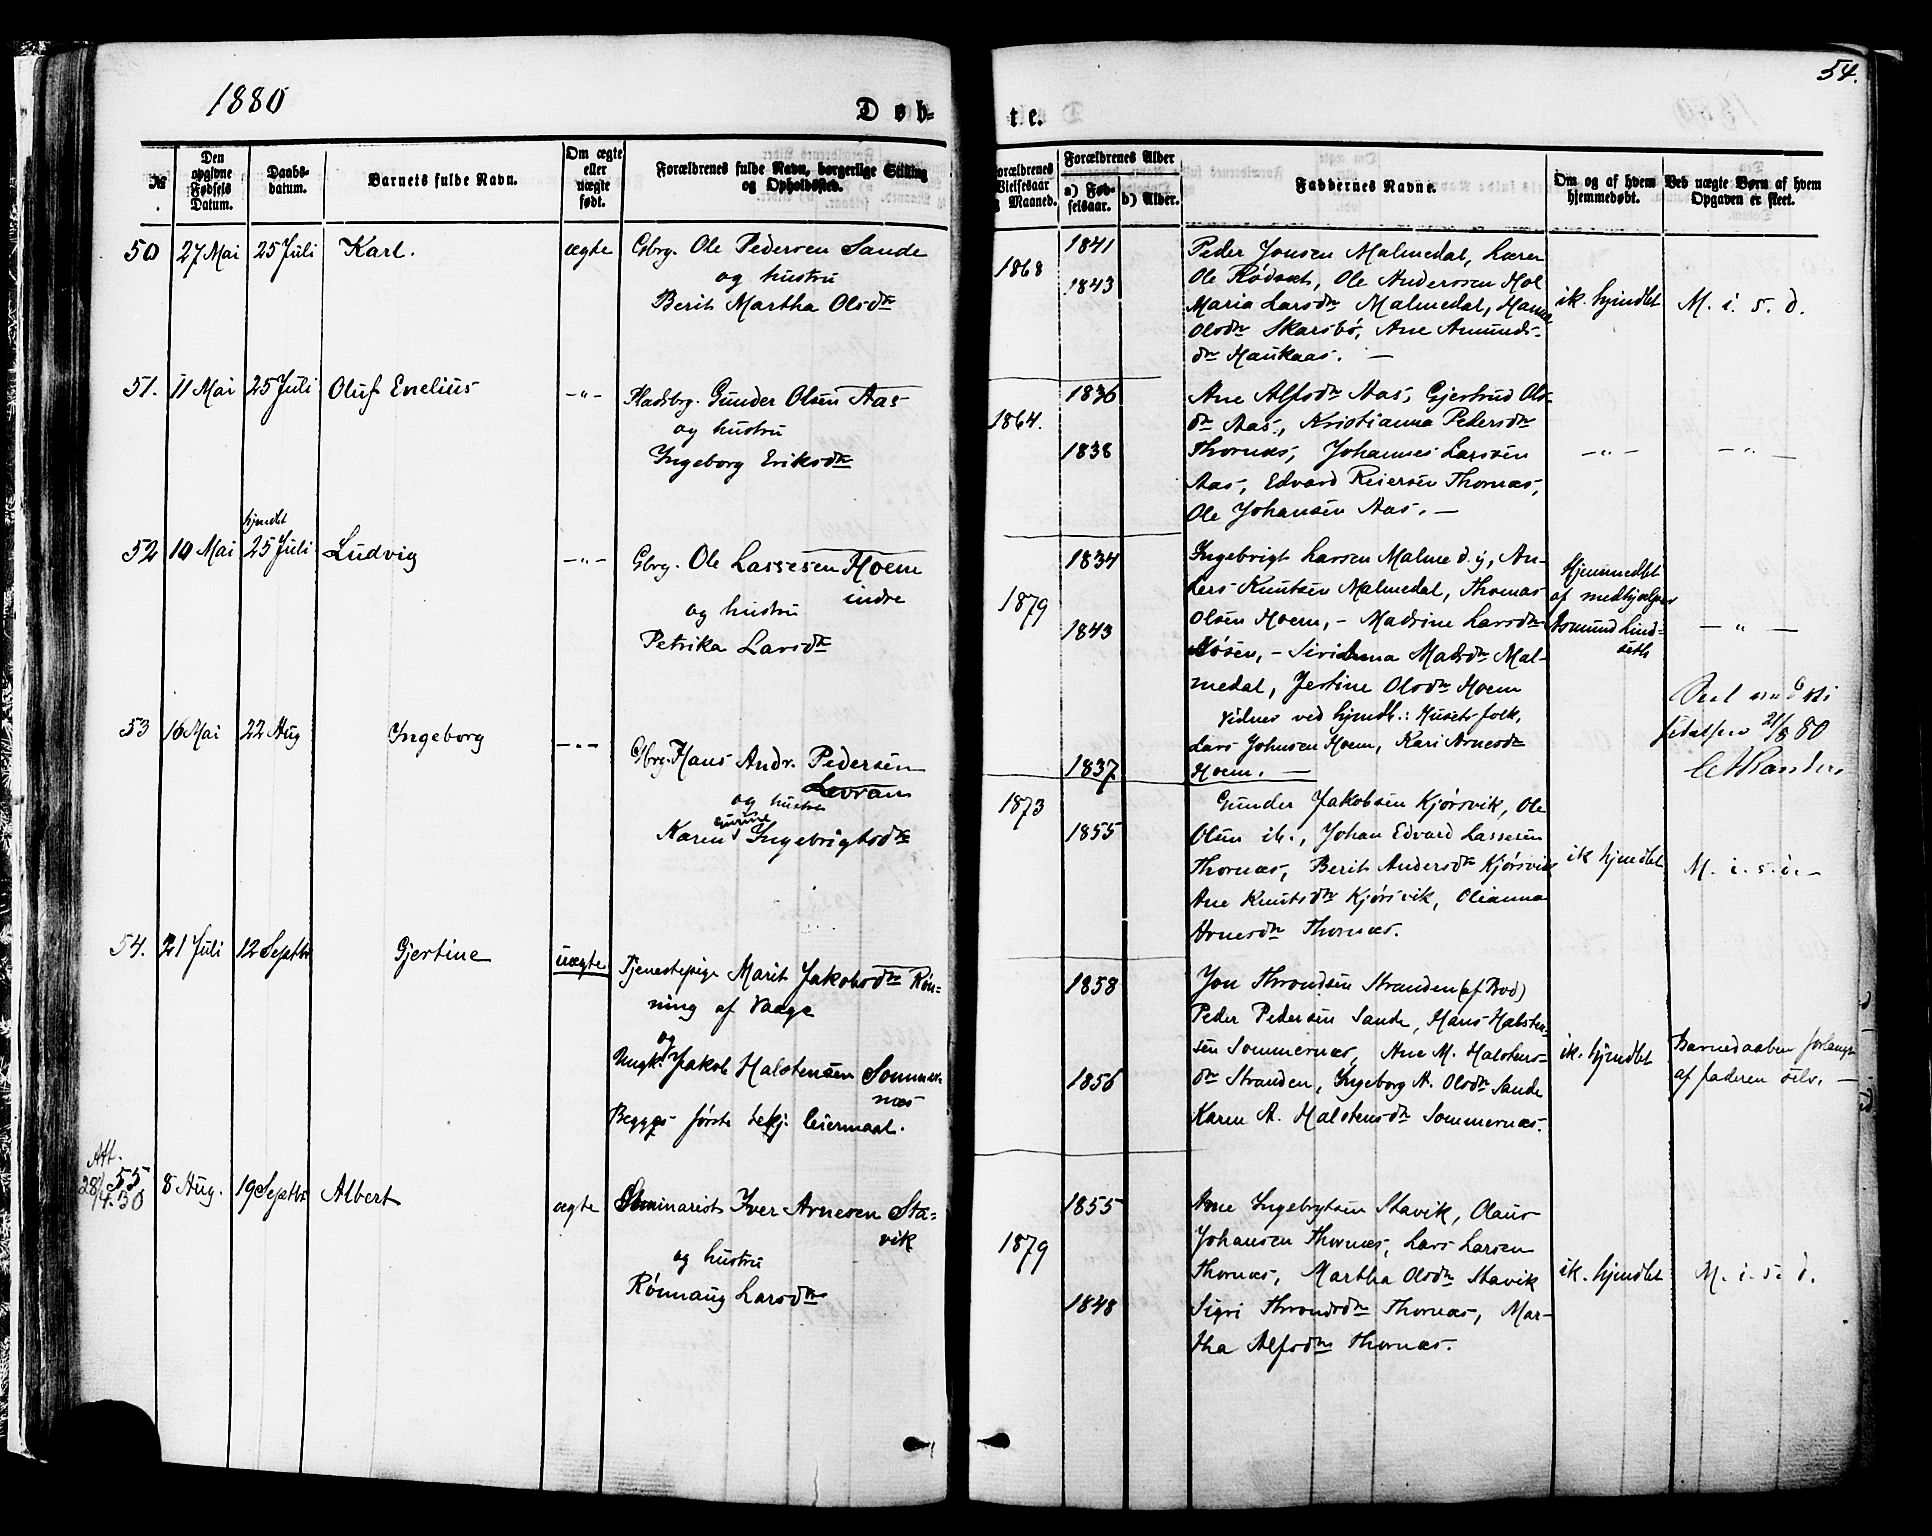 1880
54.
Døb-
te.
№
Den opgivne Fødsels Datum.
Daabs-datum.
Barnets fulde Navn.
Om ægte eller uægte født.
Forældrenes fulde Navn, borgerlige Stilling og Opholdssted.
Forældrenes Vielsesaar og Maaned.
Forældrenes Alder
a) Fødselsaar.
b) Alder.
Faddernes Navne.
Om og af hvem hjemmedøbt.
Ved uægte Børn af hvem Opgaven er skeet.
50 27 Mai 25 Juli Karl. ægte
Gbrg. Ole Pedersen Sande
og hustru
Berit Martha Olsdtr
1868
1841
1843
Peder Jonsen Malmedal, Lærer
Ole Rødset, Ole Anderssen Hol
Maria Larsdtr Malmedal, Hanna
Olsdtr Skarsbø, Ane Amunds-
dtr Haukaas. —
ik. hjmdbt
M. i. s. d.
51. 11 Mai 25 Juli Oluf Enelius -"-
Pladsbrg. Gunder Olsen Aas
og hustru
Ingeborg Eriksdtr
1864.
1836
1838
Ane Alfsdtr Aas, Gjertrud Ols-
dtr Aas, Kristianna Pedersdtr
Thornæs, Johannes Larsen
Aas, Edvard Reiersen Thornæs,
Ole Johansen Aas. —
-"-
-"-
hjmdbt
52 10 Mai 25 Juli Ludvig -"-
Gbrg. Ole Lassesen Hoem
indre
og hustru
Petrika Larsdtr
1879
1834
1843
Ingebrigt Larsen Malme d. y, An-
ders Knutsen Malmedal, Thomas
Olsen Hoem, - Madsine Larsdtr
Røsen, - Sirianna Madsdtr Mal-
medal, Jertine Olsdtr Hoem
Vidner ved hjmdb.: Husets folk,
Lars Johnsen Hoem, Kari Arnesdtr
Hoem. —
Hjemmedbt
af medhjælper
Asmund Lind-
seth
— " —
21/8 80
53 16 Mai 22 Aug Ingeborg -"-
Gbrg. Hans Andr. Pedersen
Levran
og hustru
Karen Gurine Ingebrigtsdtr
1873
1837
1855
Gunder Jakobsen Kjørsvik, Ole
Olsen ib., Johan Edvard Lassesen
Thornæs, Berit Andersdtr Kjørsvik
Ane Knutsdtr Kjørsvik, Olianna
Arnesdtr Thornæs.
ik hjmdbt
M. i. s. d. -
54. 21 Juli 12 Septbr Gjertine uægte
Tjenestepige Marit Jakobsdtr Røn-
ning af Vaage
og
Ungk. Jakob Halstensen Sommer-
næs
Begges første bekj. leiermaal.
1858
1856
Jon Throndsen Stranden (af Bod)
Peder Pedersen Sande, Hans Halsten-
sen Sommernæs, Ane M. Halstens-
dtr Stranden, Ingeborg A. Olsdtr Sande
Karen A. Halstensdtr Sommernæs.
ik. hjmdbt
Barnedaaben forlangt
af faderen selv. —
Att.
28/4.30
55 8 Aug. 19 Septbr Albert ægte
Seminarist Iver Arnesen Sta-
vik
og hustru
Rønnaug Larsdtr
1879
1855
1848
Arne Ingebrigtsen Stavik, Olaus
Johansen Thornæs, Lars Larsen
Thornæs, Martha Olsdtr Stavik
Sigri Throndsdtr Thornæs, Mar-
tha Alfsdtr Thornæs.
ik. hjmdbt
M. i. s. d.